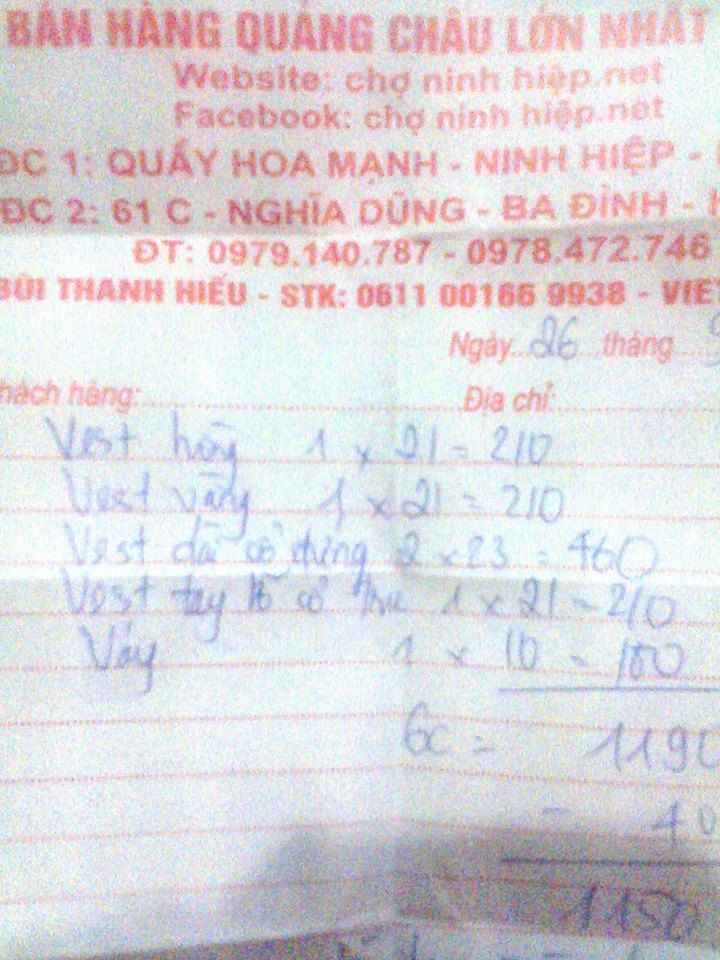 BÁN HÀNG QUẢNG CHÂU LỚN NHẤT
Website: chợ ninh hiệp.net
Facebook: chợ ninh hiệp.net
ĐC 1: QUẦY HOA MẠNH - NINH HIỆP -
ĐC 2: 61 C - NGHĨA DŨNG - BA ĐÌNH -
ĐT: 0979.140.787 - 0978.472.746
BÙI THANH HIẾU - STK: 0611 00166 9938 - VIET
Ngày 26 tháng
hách hàng: Địa chỉ:
Vest hồng 1 x 21 = 210
Vest vàng 1 x 21 = 210
Vest dài cổ đứng 2 x 23 = 460
Vest tay lỡ cổ 1 x 21 = 210
Váy 1 x 10 = 100
6c = 1190
- 40
1150